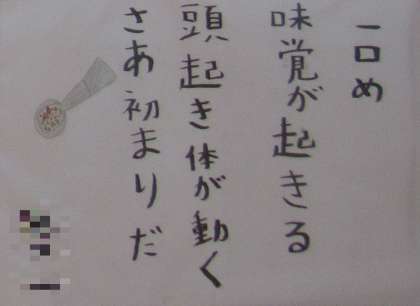 一口め
味覚が起きる
頭起き体が動く
さあ初まりだ